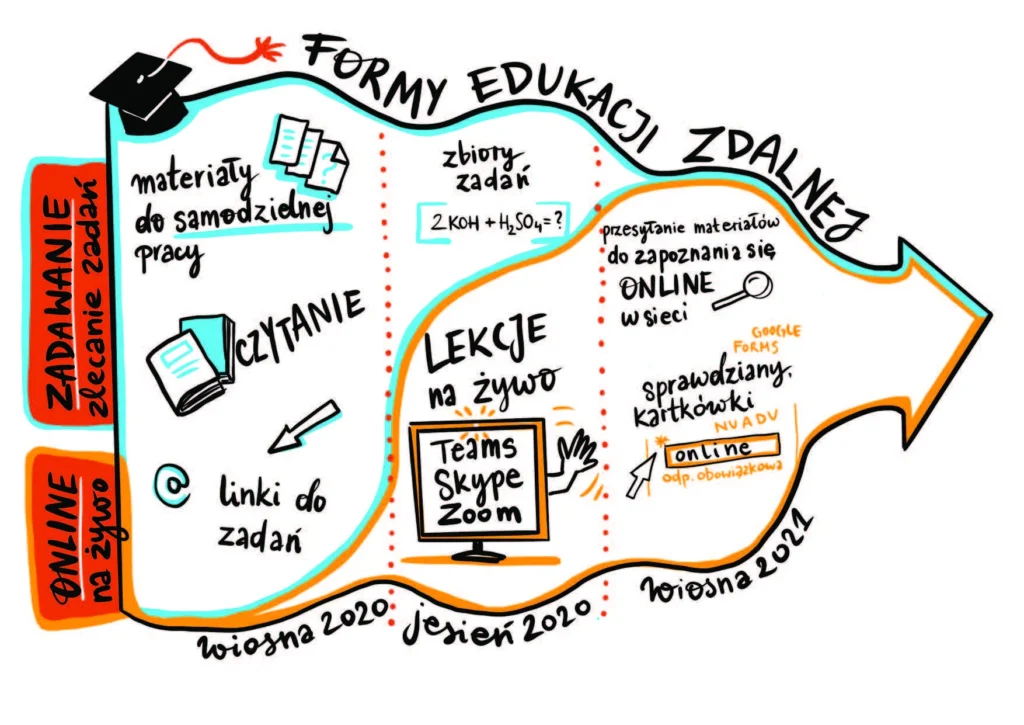 FORMY EDUKACJI ZDALNEJ
ZADAWANIE
zlecanie zadań
ONLINE
na żywo
materiały
do samodzielnej
pracy
?
CZYTANIE
@
linki do
zadań
wiosna 2020
zbiory
zadań
2 KOH + H₂SO₄ = ?
LEKCJE
na żywo
Teams
Skype
Zoom
jesień 2020
przesyłanie materiałów
do zapoznania się
ONLINE
w sieci
GOOGLE
FORMS
sprawdziany,
kartkówki
NVADU
* online
odp. obowiązkowa
wiosna 2021